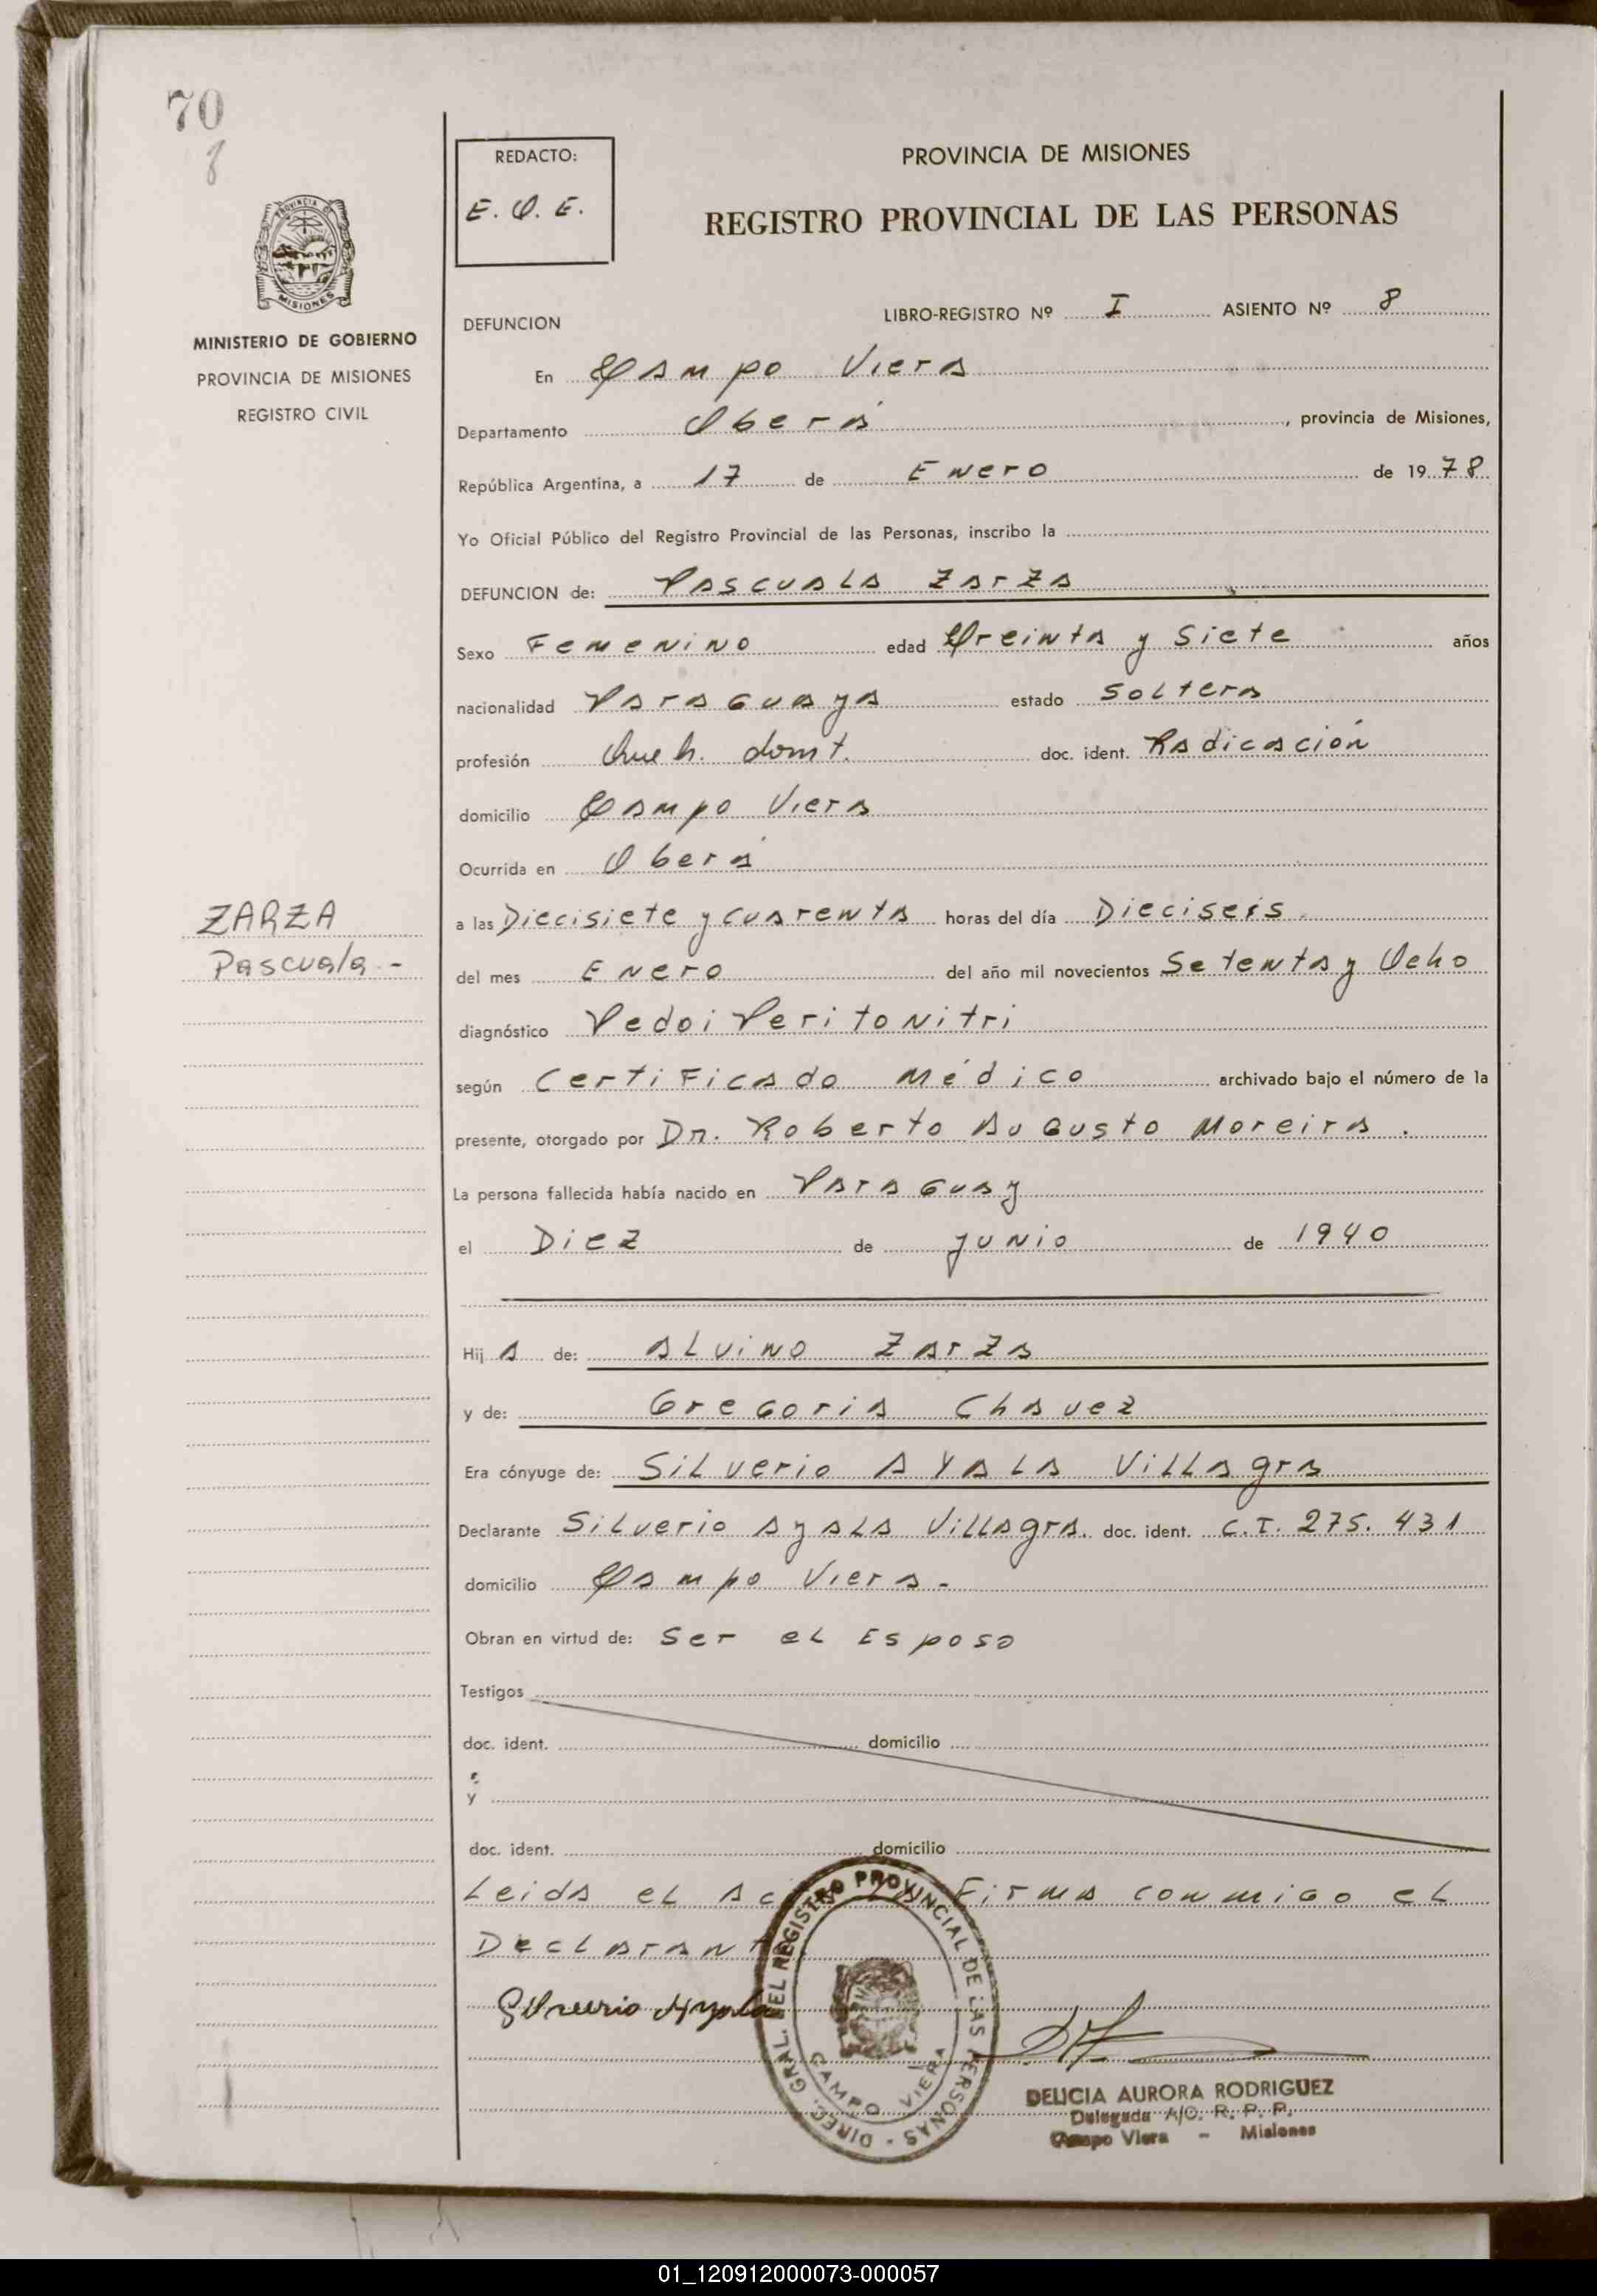 70
8
REDACTO:
E. O. E.
PROVINCIA DE MISIONES
REGISTRO PROVINCIAL DE LAS PERSONAS
PROVINCIA DE
MISIONES
MINISTERIO DE GOBIERNO
PROVINCIA DE MISIONES
REGISTRO CIVIL
DEFUNCION
LIBRO-REGISTRO Nº I ASIENTO Nº 8
En Campo Viera
Departamento Oberá, provincia de Misiones,
República Argentina, a 17 de Enero de 1978
Yo Oficial Público del Registro Provincial de las Personas, inscribo la
DEFUNCION de: Pascuala Zarza
Sexo Femenino edad Treinta y Siete años
nacionalidad Paraguaya estado Soltera
profesión domt. doc. ident. Radicación
domicilio Campo Viera
Ocurrida en Oberá
a las Diecisiete y cuarenta horas del día Dieciseis.
del mes Enero del año mil novecientos Setenta y Ocho
diagnóstico Pedoi Peritonitri
según Certificado Médico archivado bajo el número de la
presente, otorgado por Dr. Roberto Augusto Moreira.
La persona fallecida había nacido en Paraguay
el Diez de Junio de 1940
Hija de: Alvino Zarza
y de: Gregoria Chavez
Era cónyuge de: Silverio Ayala Villagra
Declarante Silverio Ayala Villagra. doc. ident. C.I. 275.431
domicilio Campo Viera.-
Obran en virtud de: Ser el Esposo
Testigos
doc. ident. domicilio
y
doc. ident. domicilio
Leida el Firma conmigo el
Declarant
Silverio Ayala
ZARZA
Pascuala-
DIREC. GRAL. DEL REGISTRO PROVINCIAL DE LAS PERSONAS -
CAMPO VIERA
DELICIA AURORA RODRIGUEZ
Delegada A/C. R. P. P.
Campo Viera - Misiones
01_120912000073-000057